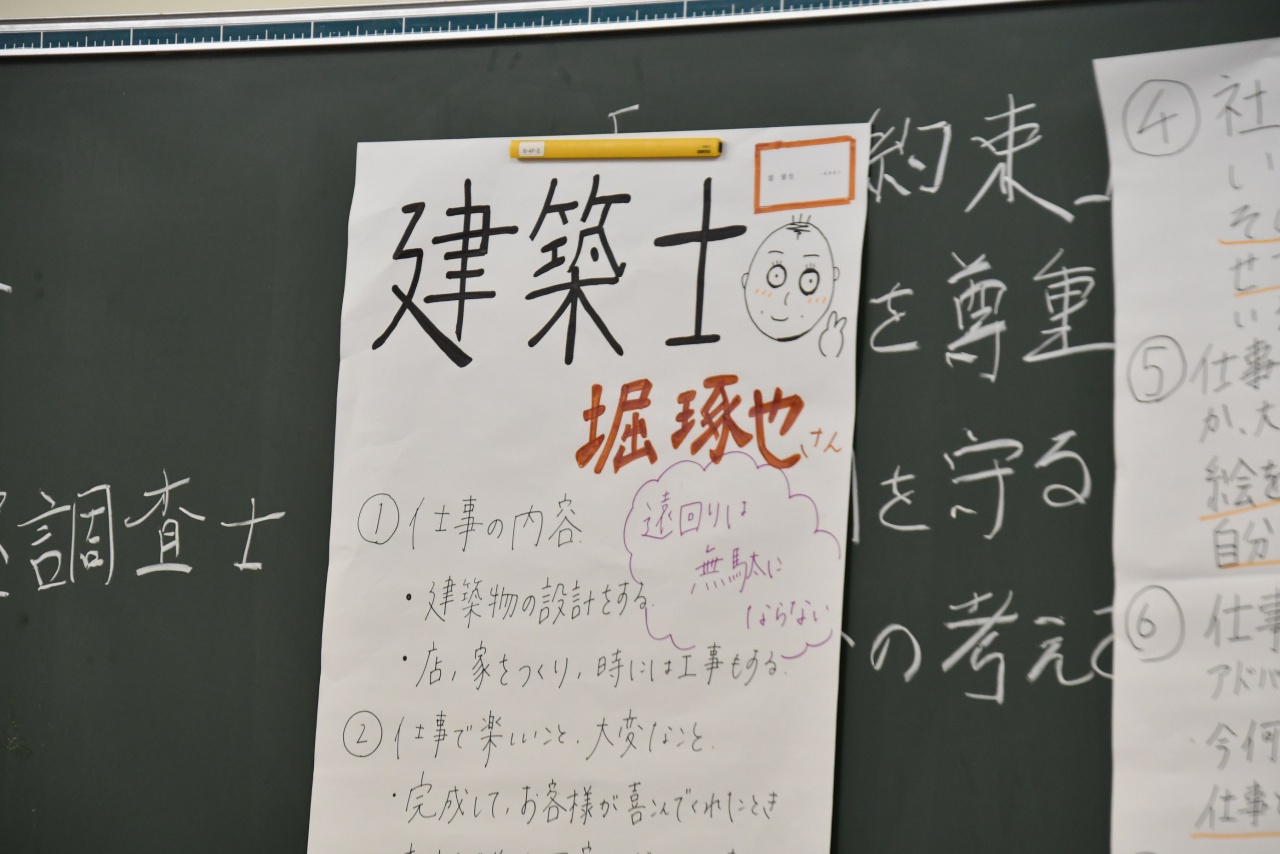 調査士
建築士
堀琢也さん
遠回りは
無駄に
ならない
①仕事の内容
・建築物の設計をする
・店、家をつくり、時には工事もする。
②仕事で楽しいこと、大変なこと
・完成して、お客様が喜んでくれたとき
約束
を尊重
を守る
の考え
④社
い
そ
せ
い
⑤仕事
か、大
絵を
自分
⑥仕事
アドバ
・今何
仕事